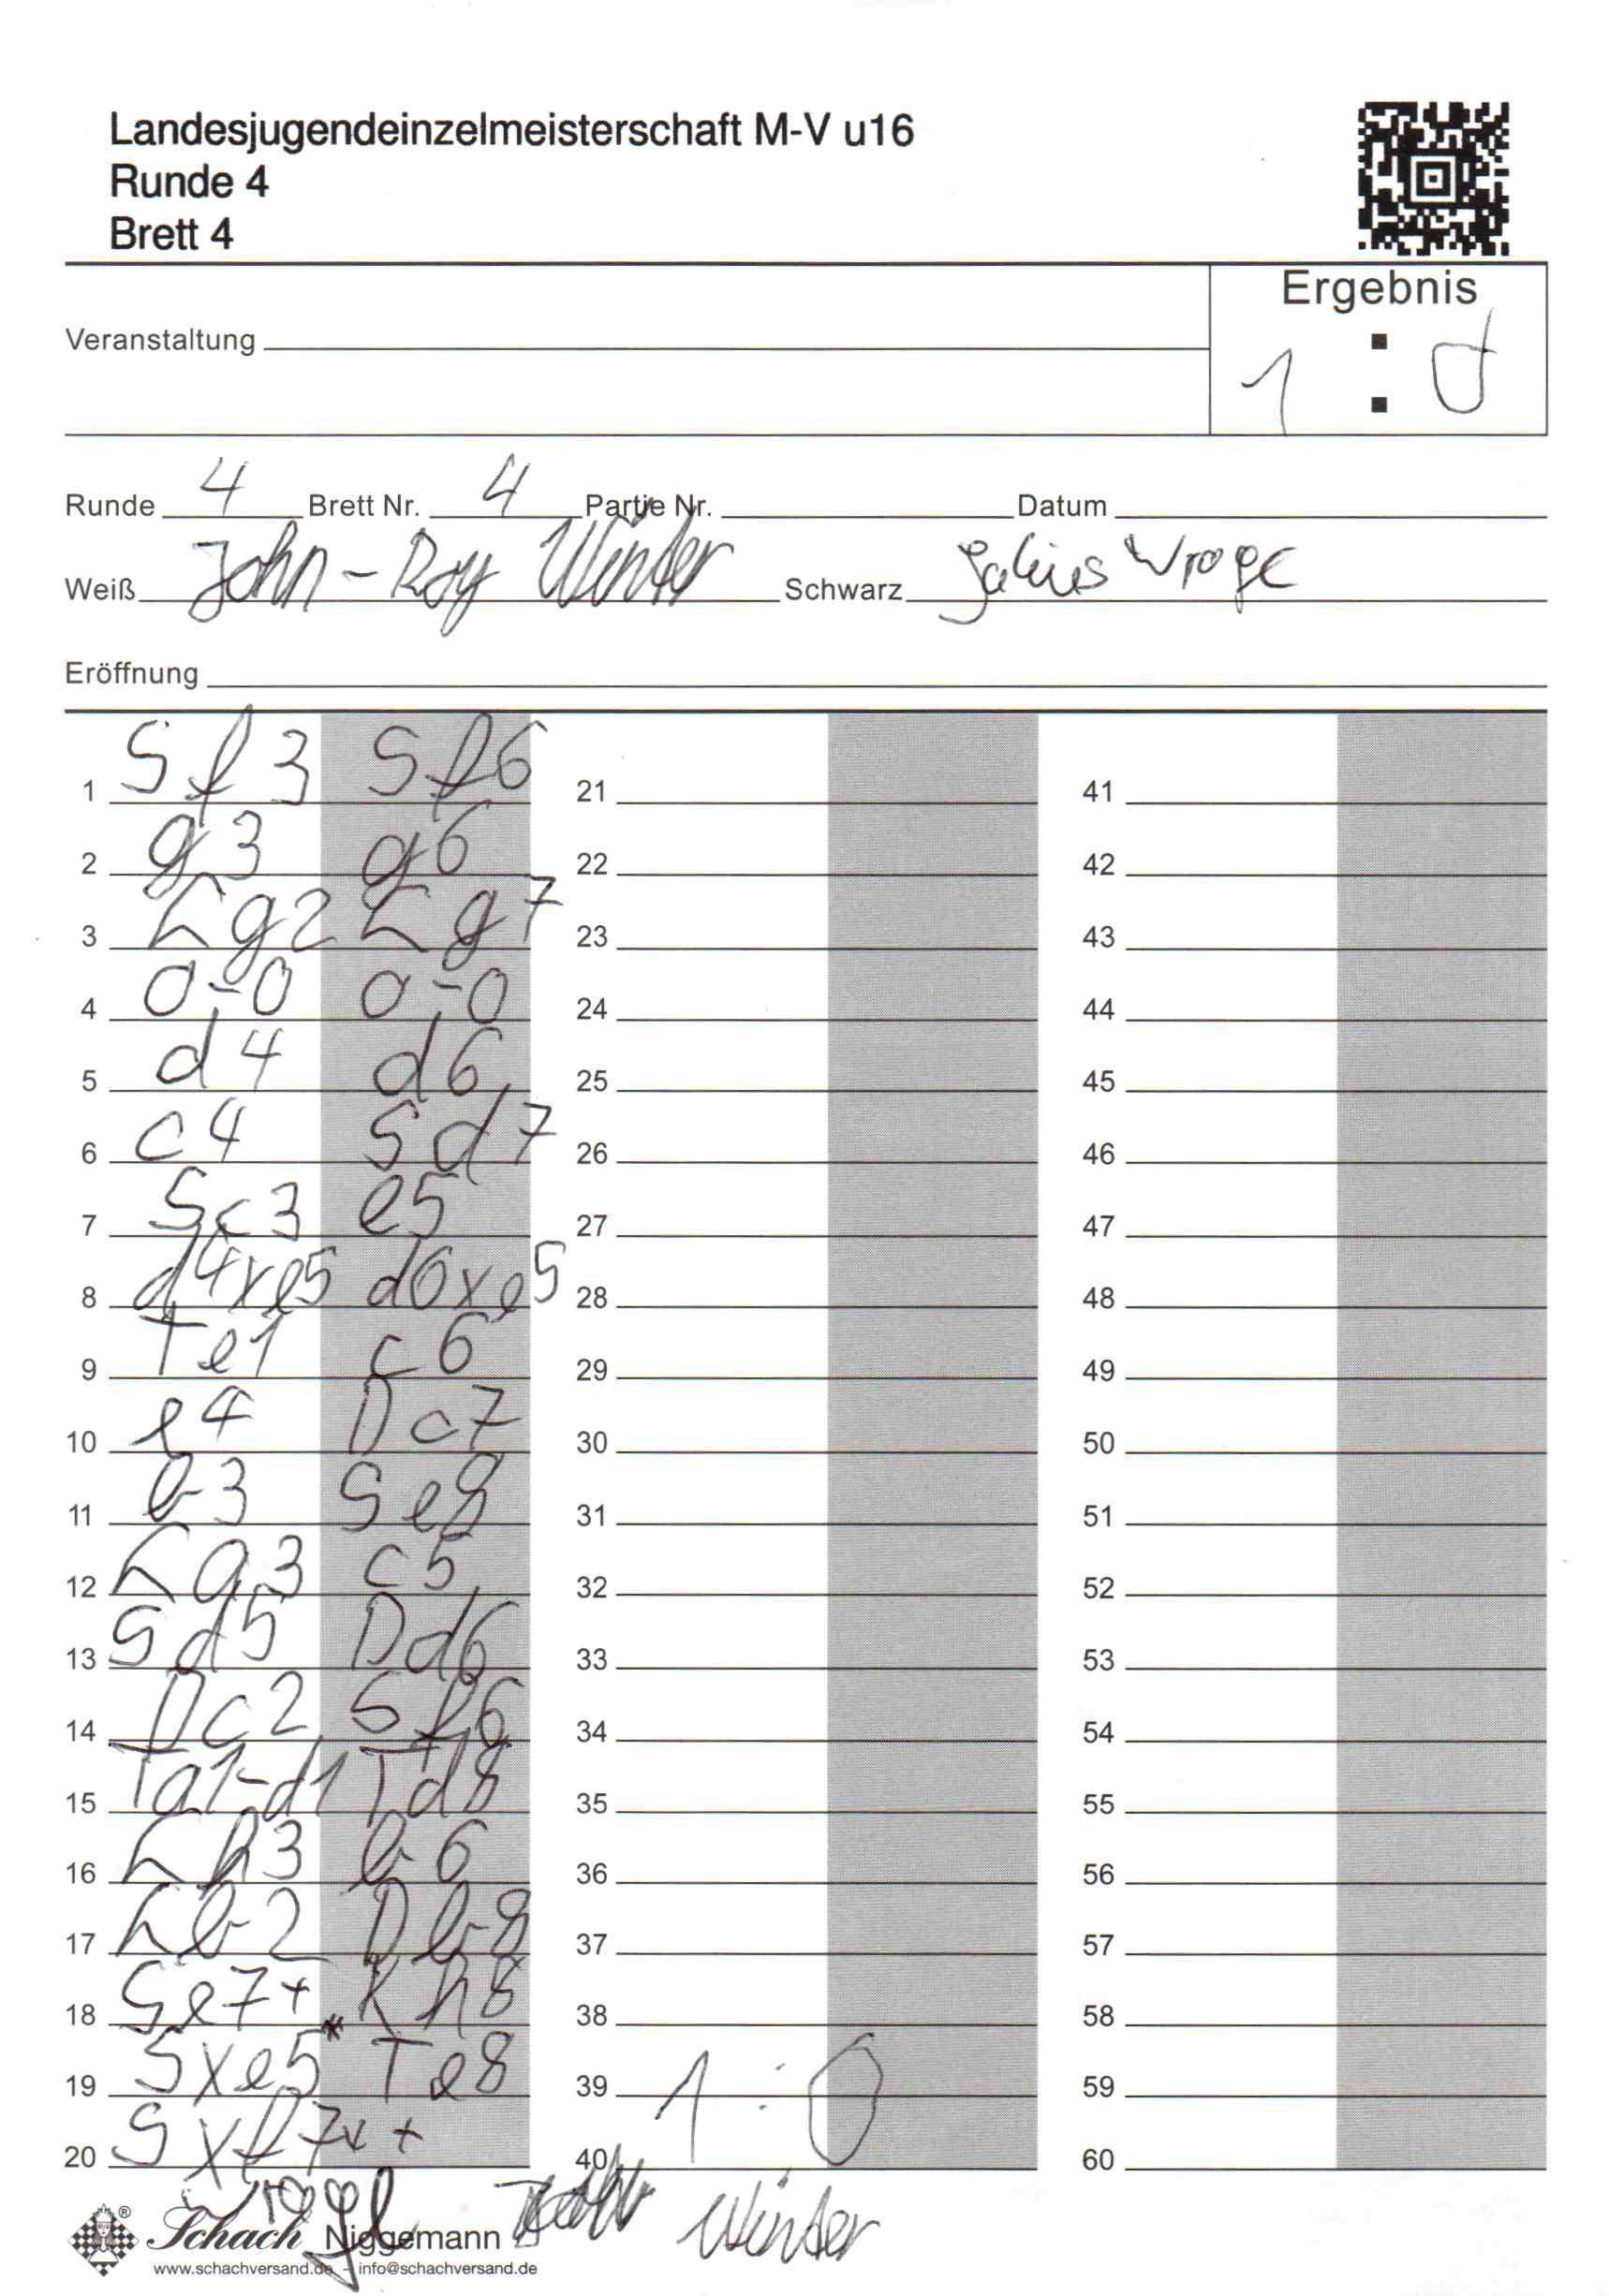 Landesjugendeinzelmeisterschaft M-V u16
Runde 4
Brett 4
Ergebnis
Veranstaltung
1 : 0
Runde 4 Brett Nr. 4 Partie Nr. Datum
Weiß John-Roy Winter Schwarz Julius Wroge
Eröffnung
1 Sf3 Sf6 21 41
2 g3 g6 22 42
3 Lg2 Lg7 23 43
4 0-0 0-0 24 44
5 d4 d6 25 45
6 c4 Sd7 26 46
7 Sc3 e5 27 47
8 d4xe5 d6xe5 28 48
9 Te1 c6 29 49
10 e4 Dc7 30 50
11 b3 Se8 31 51
12 La3 c5 32 52
13 Sd5 Dd6 33 53
14 Dc2 Sf6 34 54
15 Ta1-d1 Td8 35 55
16 Lh3 b6 36 56
17 Lb2 Db8 37 57
18 Se7+ Kh8 38 58
19 Sxe5* Te8 39 1 : 0 59
20 Sxf7x+ 40 60
Wroge Winter
Schach Niggemann
www.schachversand.de - info@schachversand.de